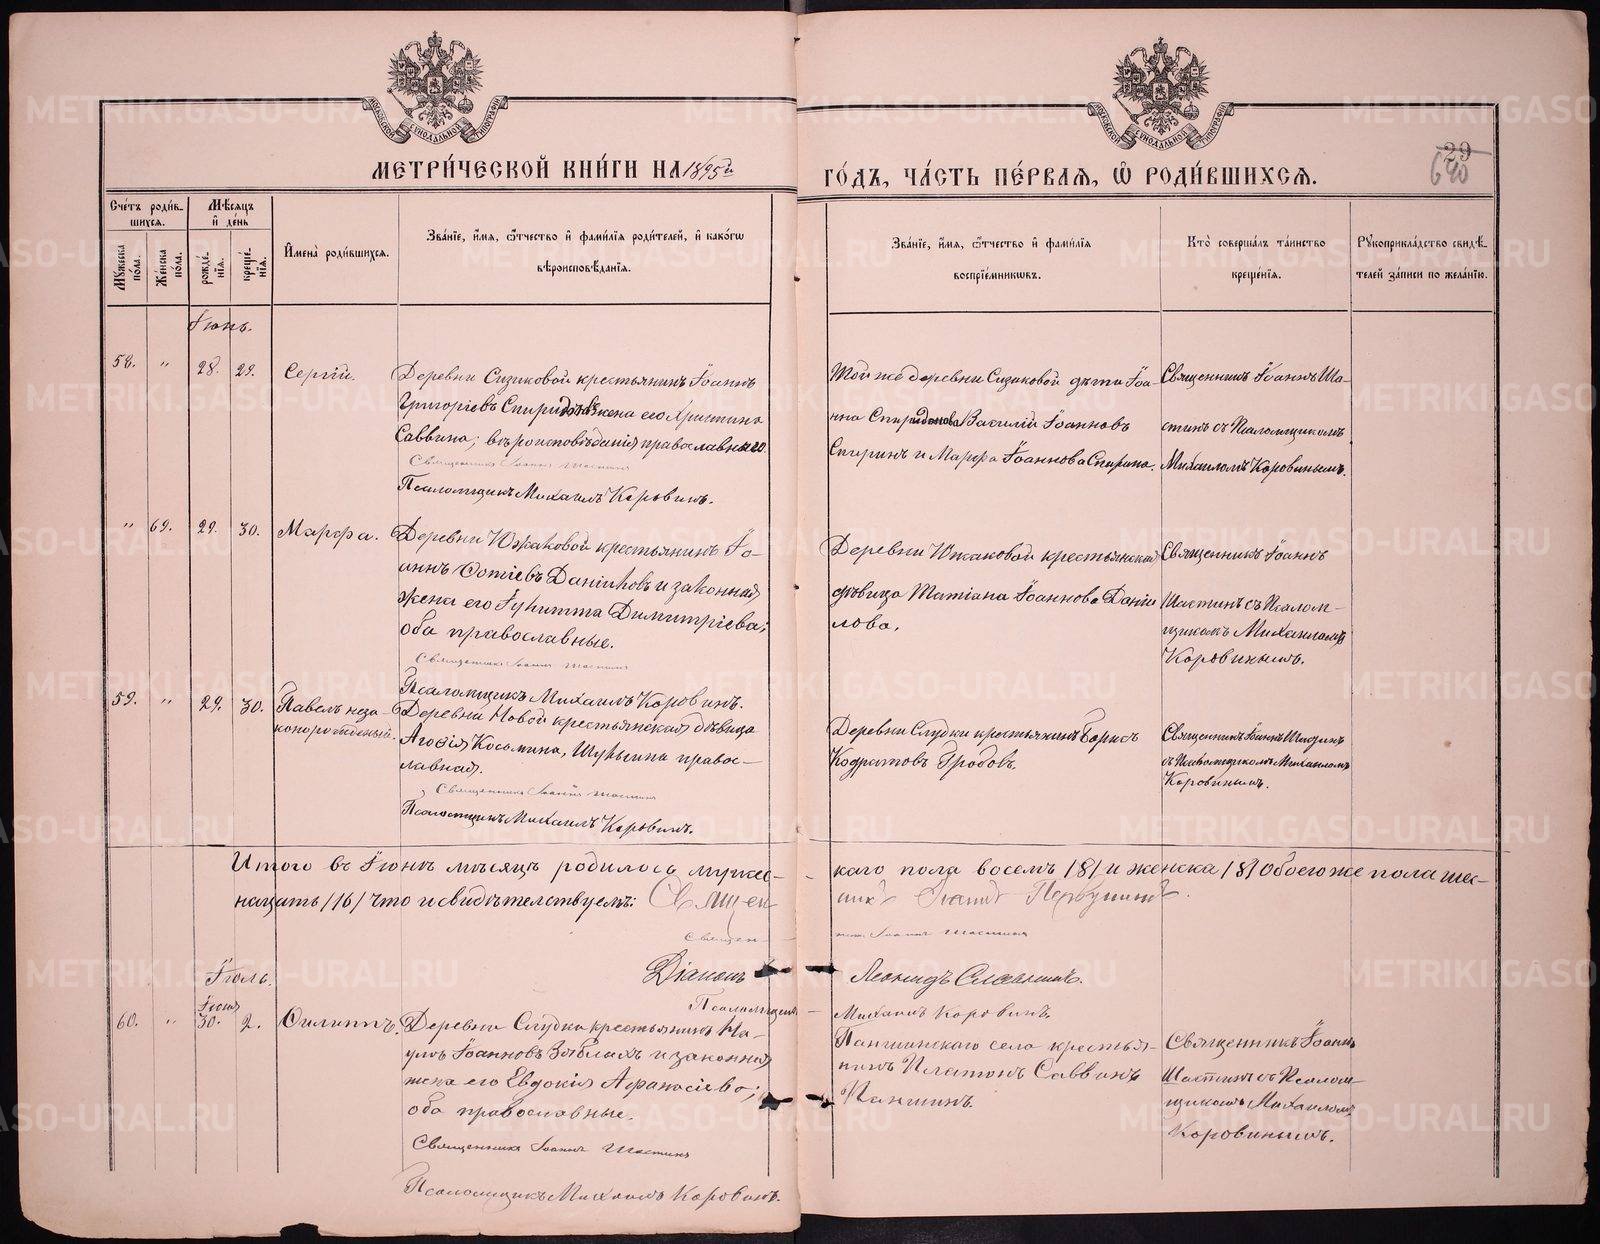 МОСКОВСКОЙ СѴНОДАЛЬНОЙ ТИПОГРАФІИ
МОСКОВСКОЙ СѴНОДАЛЬНОЙ ТИПОГРАФІИ
МЕТРИ́ЧЕСКОЙ КНИ́ГИ НА 1895й
ГО́ДЪ, ЧА́СТЬ ПЕ́РВАЯ, Ѡ РОДИ́ВШИХСЯ.
29
640
Сче́тъ роди́в-
шихся.
Мꙋжеска
по́ла.
Же́нска
по́ла.
Мѣсяцъ
и҆ де́нь
рожде́-
нїя.
креще́-
нїя.
И҆мена̀ роди́вшихся.
Зва́нїе, и҆́мя, ѻ҆́тчество и҆ фами́лїя роди́телей, и҆ како́гѡ
вѣроисповѣ́данїя.
Зва́нїе, и҆́мя, ѻ҆́тчество и҆ фами́лїя
воспрїе́мникѡвъ.
Кто̀ соверша́лъ та́инство
креще́нїя.
Рꙋкоприкла́дство свидѣ́-
телей за́писи по жела́нїю.
Іюнь.
58. " 28. 29. Сергій.
Деревни Сизиковой крестьянинъ Іоаннъ
Григоріевъ жена его Христина
Саввина; вѣроисповѣданія православнаго
Священникъ Іоаннъ Шастинъ
Псаломщикъ Михаилъ Коровинъ.
Той же деревни Сизиковой дѣти Іоа-
нна Василій Іоанновъ
Спиринъ и Марфа Іоаннова Спирина.
Священникъ Іоаннъ Ша-
стинъ съ Псаломщикомъ
Михаиломъ Коровинымъ.
" 69. 29. 30. Марфа.
Деревни Южаковой крестьянинъ Іо-
аннъ Фотіевъ Даниловъ и законная
жена его Іулитта Димитріева;
оба православные.
Священникъ Іоаннъ Шастинъ
Псаломщикъ Михаилъ Коровинъ.
Деревни Южаковой крестьянская
дѣвица Татіана Іоаннова Дани
лова.
Священникъ Іоаннъ
Шастинъ съ Псалом-
щикомъ Михаиломъ
Коровинымъ.
59. " 29. 30. Павелъ неза-
конорожденный.
Деревни Новой крестьянская дѣвица
Агафія Косьмина, православная.
Священникъ Іоаннъ Шастинъ
Псаломщикъ Михаилъ Коровинъ.
Деревни Слудки крестьянинъ Борисъ
Кодратовъ Гробовъ.
Священникъ Іоаннъ Шастинъ
съ Псаломщикомъ Михаиломъ
Коровинымъ.
Итого въ Іюнѣ мѣсяцѣ родилось мужес-
каго пола восемь /8/ и женска /8/ Обоего же пола шес-
надцать /16/ Что и свидѣтелствуемъ: Священ-
никъ
Священ-
никъ Іоаннъ Шастинъ
Діаконъ
Леонидъ Славнинъ.
Псаломщикъ
Михаилъ Коровинъ.
Іюль.
Іюня
60. " 30. 2. Филиппъ.
Деревни Слудки крестьянинъ На-
умъ Іоанновъ и законная
жена его Евдокія Афанасіева;
оба православные.
Священникъ Іоаннъ Шастинъ
Псаломщикъ Михаилъ Коровинъ.
Паншинскаго села крестья-
нинъ Платонъ Саввинъ
Паншинъ.
Священникъ Іоаннъ
Шастинъ съ Псалом-
щикомъ Михаиломъ
Коровинымъ.
METRIKI.GASO-URAL.RU